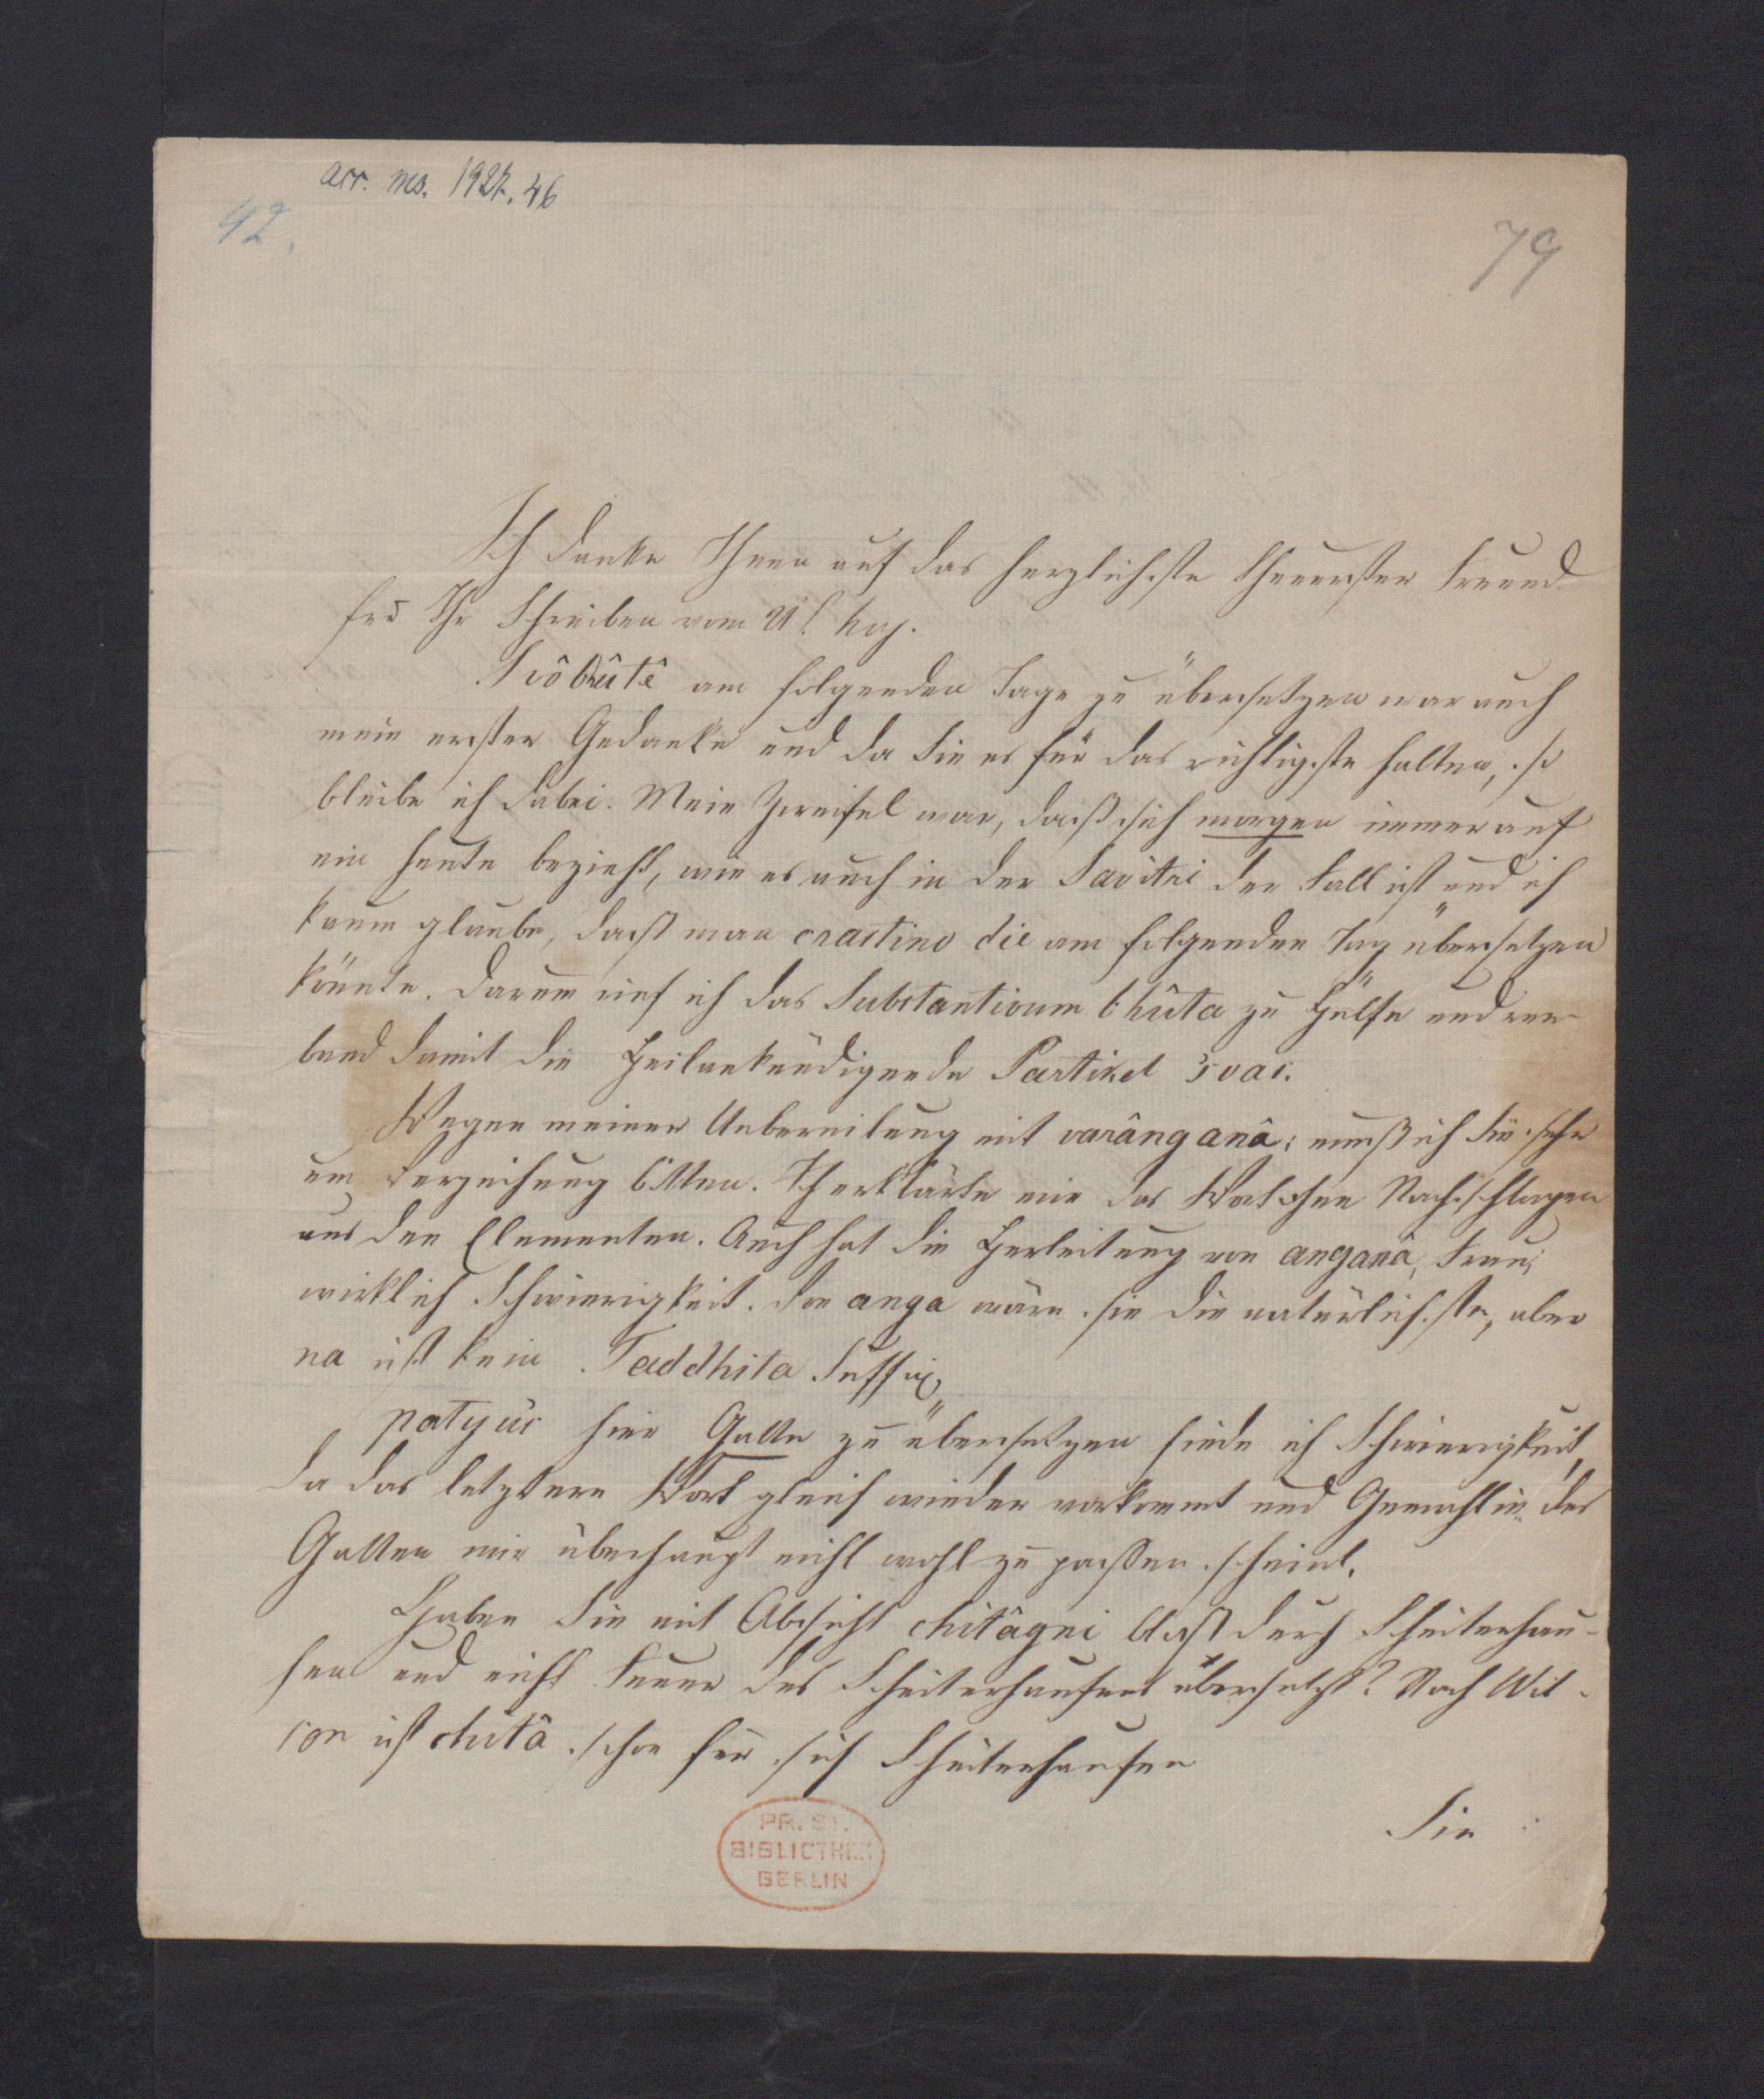 acc. ms. 1927. 46
42.
79
Ich danke Ihnen auf das herzlichste theuerster Freund
für Ihr Schreiben vom
Svôbhûtê am folgenden Tage zu übersetzen war auch
mein erster Gedanke und da Sie es für das richtigste halten, so
bleibe ich dabei. Mein Zweifel war, daß sich morgen immer auf
ein heute bezieht, wie es auch in der Savitri der Fall ist und ich
kaum glaube, daß man crastino die am folgenden Tag übersetzen
könnte. Darum rief ich das Substantivum bhûta zu Hülfe und ver-
band damit die Heilankündigende Partikel svas.
Wegen meiner Uebereilung mit varânganâ: muß ich Sie sehr
um Verzeihung bitten. Ich erklärte mir das Wort ohne Nachschlagen
aus den Elementen. Auch hat die Herleitung von anganâ, Frau,
wirklich Schwierigkeit. Von anga wäre sie die natürlichste, aber
na ist kein Taddhita Suffix.
patyus hier Gatte zu übersetzen finde ich Schwierigkeit,
da das letztere Wort gleich wieder vorkommt und Gemahlin des
Gatten mir überhaupt nicht wohl zu passen scheint.
Haben Sie mit Absicht chitâgni bloß durch Scheiterhau-
fen und nicht Feuer des Scheiterhaufens übersetzt? Nach Wil-
son ist chitâ schon für sich Scheiterhaufen
Sie
PR. ST.
BIBLIOTHEK
BERLIN